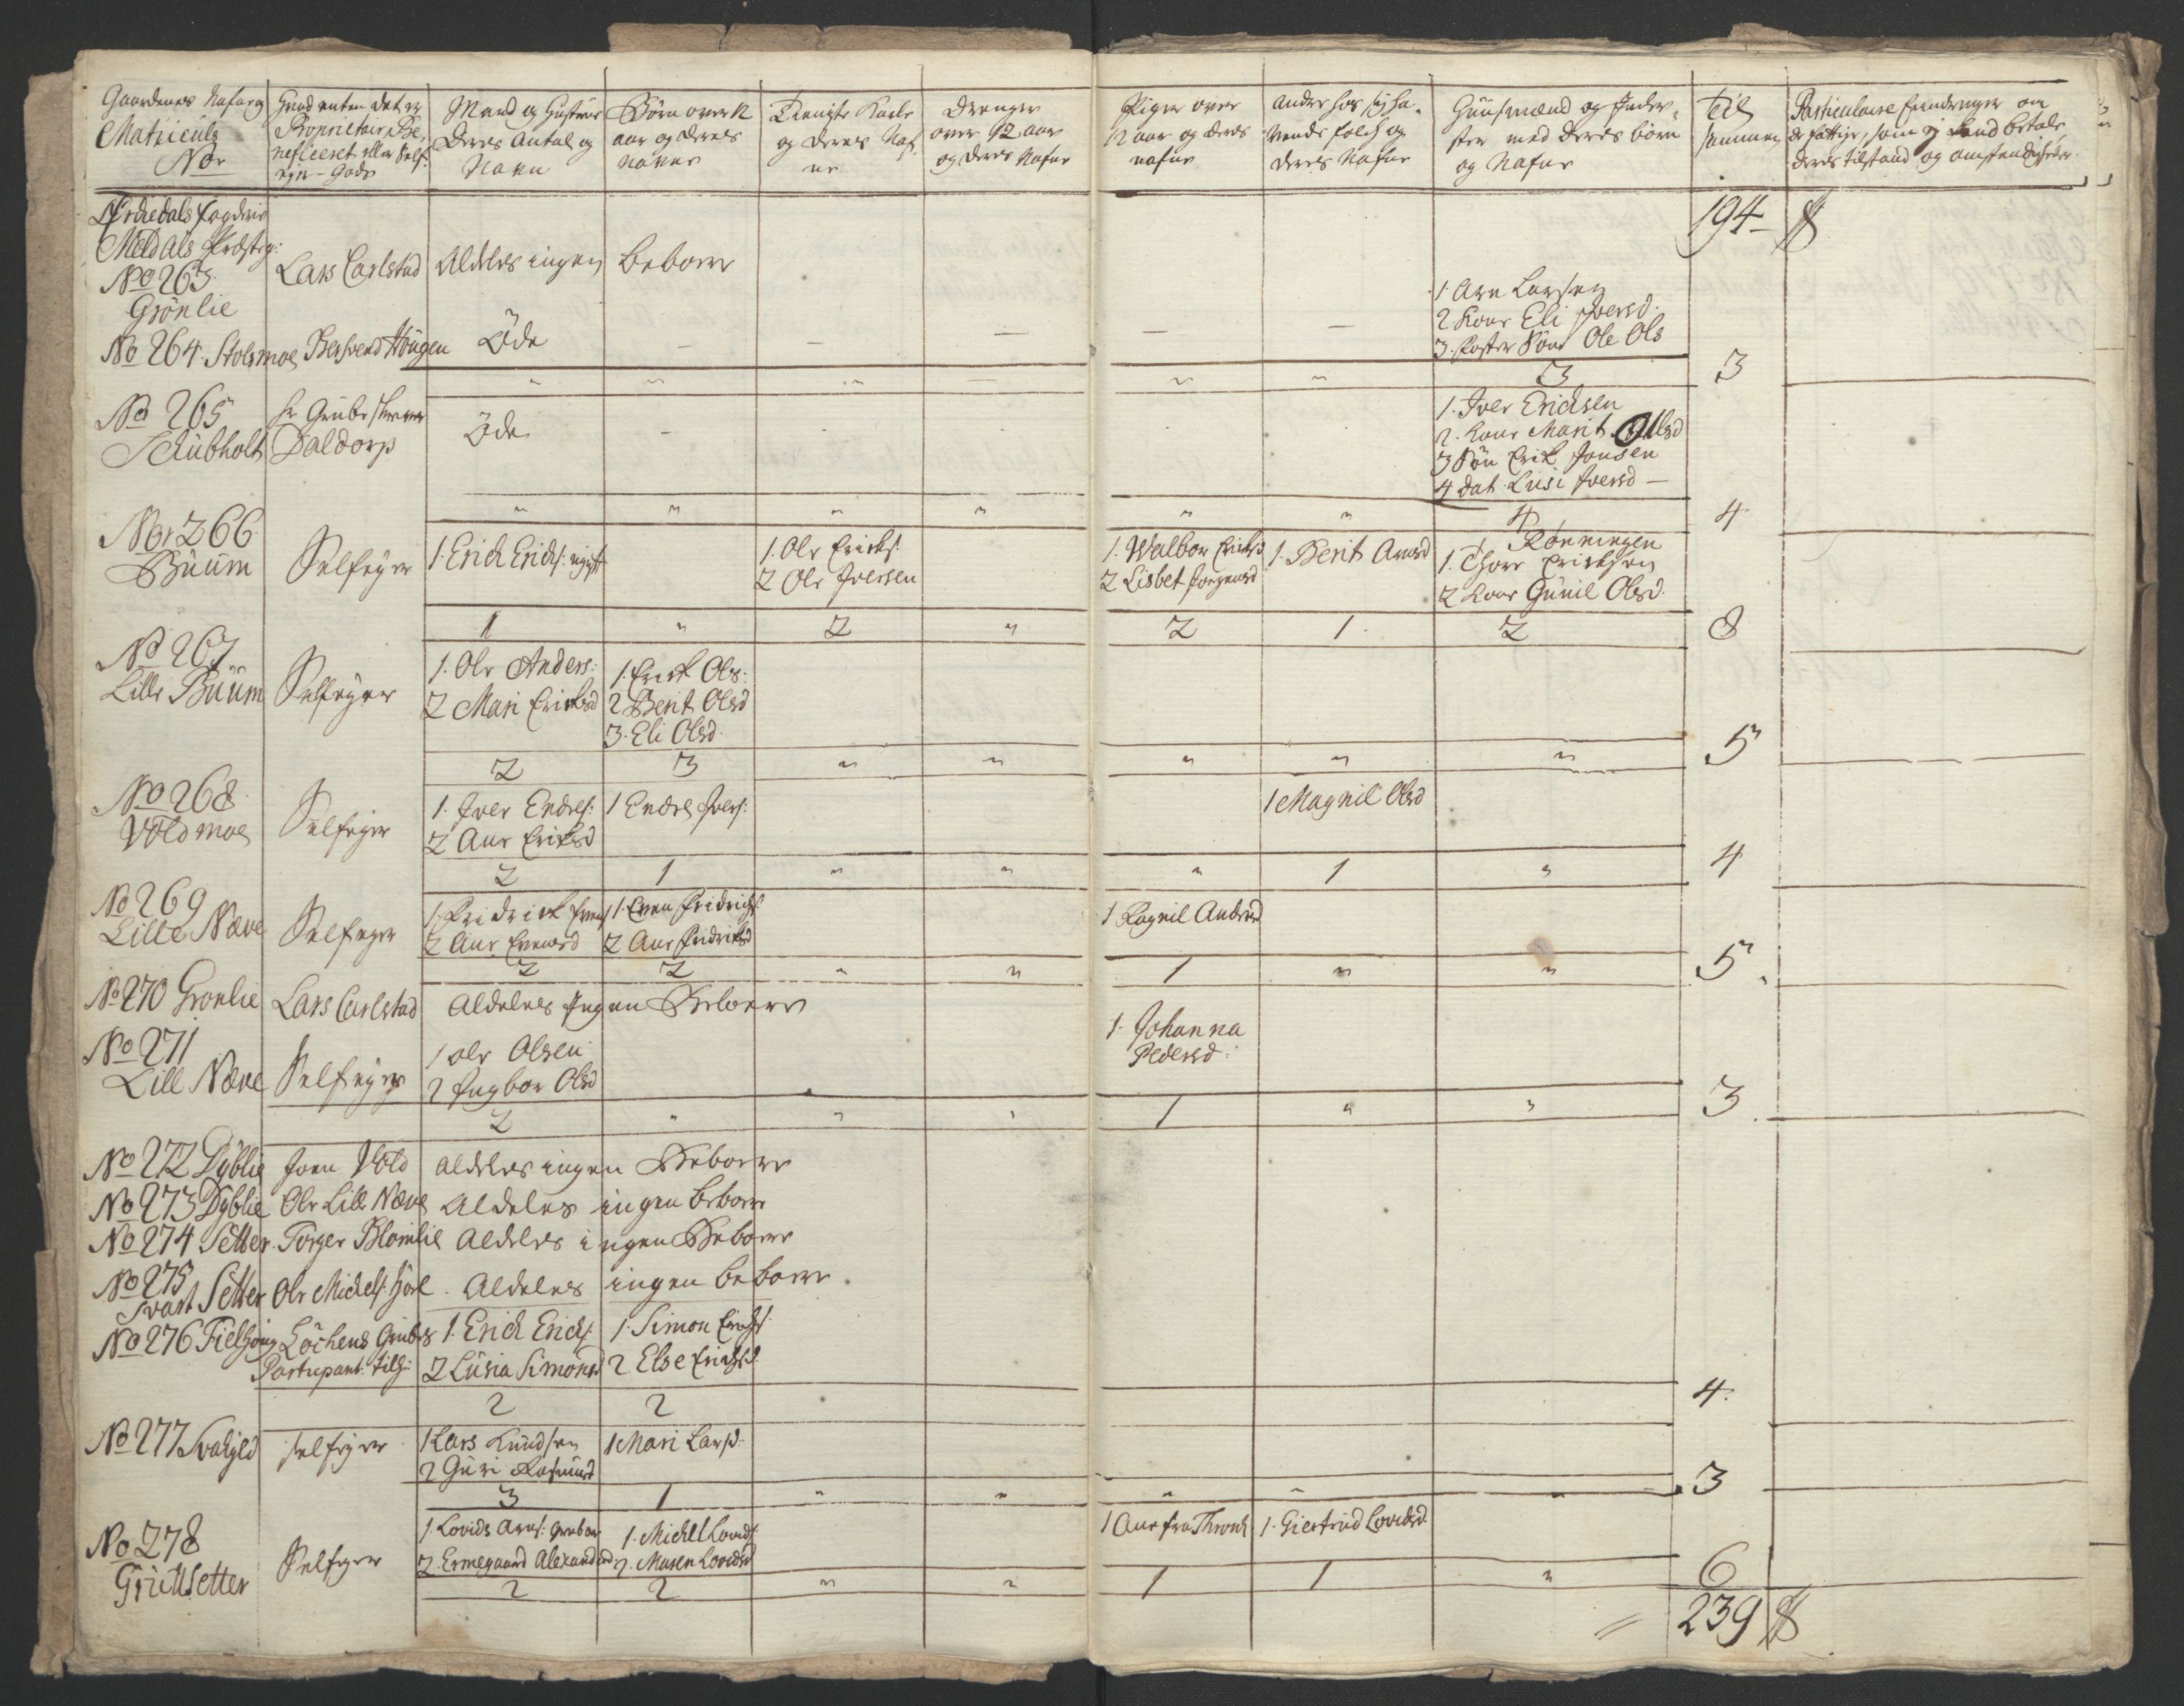 Gaardenes Nafn og
Matricula
No.
Hvad enten det er
Proprietair, Be-
neficeret eller Self-
eyer-Gods
Mand og Hustrue
Deres Antal og
Navn
Børn over 12
aar og deres
navne
Tieniste Karle
og deres Naf-
ne
Drenger
over 12 aar
og deres Nafne
Piger over
12 aar og deres
nafne
Andre hos sig ha-
vende folck og
deres Nafne
Huusmænd og Inder-
ster med deres børn
og Nafne
Til
sammen
Particulaire
de fattige, som ej kand betale
deres tilstand og omstendigheder
Ørckedals fogderie
Meldals Præsteg:
194
No 263
Grönlie
Lars Carlstad Aldeles ingen beboere
No 264 Stolsmoe Bersvend Haugen Öde
1 Arn Larsen
2 Kone Eli Iversd.
3. foster Søn Ole Ols
3 3
No 265
Schubholt
Hr Grubeskriver
Daldorp
Öde
1. Iver Ericksen
2. Kone Marit Olsd
3 Søn Erik Jonsen
4 dat Lusi Iversd
4 4
Nor 266
Buum
Selfeyer
1. Erich Erichs: ugift
1. Ole Ericks:
2 Ole Iversen
1. Walbor Ericksd
2 Lisbet Jørgensd
1. Berit Arnesd
Rønningen
1. Thore Erichsen
2 Kone Gunil Olesd.
1 " 2 " 2 1. 2 8
No 267
Lille Buum
Selfeyer
1. Ole Anders:
2 Mari Ericksd
1. Erick Ols:
2 Berit Olsd
3. Eli Olsd.
2 3 " " " " " 5
No 268
Voldmoe
Selfeyer
1. Iver Endres:
2 Ane Ericksd
1 Endre Ivers:
1 Magnil Olsd
2 1 " " " 1 " 4
No 269
Lille Næve
Selfeyer
1. Fridrick Evens
2 Ane Evensd
1. Even Fridrichs:
2 Ane Fridricksd
1 Ragnil Andersd
2 2 " " 1 " " 5
No 270 Gronlie Lars Carlstad Aldeles Ingen Beboere
No 271
Lill Næve
Selfeyer
1 ole Olsen
2 Ingbor Olsd
1. Johanna
Pedersd:
2 " " " 1 " " 3
No 272 Dyblie Joen Vold aldeles ingen Beboere
No 273 Dyblie Ole Lill Næve Aldeles ingen beboere
No 274 Setter Torger Blomlie Aldeles ingen Beboere
No 275
Svart Setter Ole Michels: Hoel Aldeles ingen beboere
No 276 Fielhoug
Löchens Grubes
Partisipant: tilh:
1. Erich Erichs:
2 Lusia Simonsd
1. Simon Erichs:
2 Else Erichsd.
2 2 4.
No 277 Svahjld
selfeyer
1 Lars Knudsen
2 Guri Rasmusd
1 Mari Larsd.
3 1 " " " " " 3
No 278
Griutsetter
Selfeyer
1. Lovids Arns:
2. Ermegaard Alexandersd
1. Michel Lovids:
2. Maren Lovidsd
1 Ane fra Thronh
1. Giertrud Lovidsd
2 2 " " 1 1 " 6
239